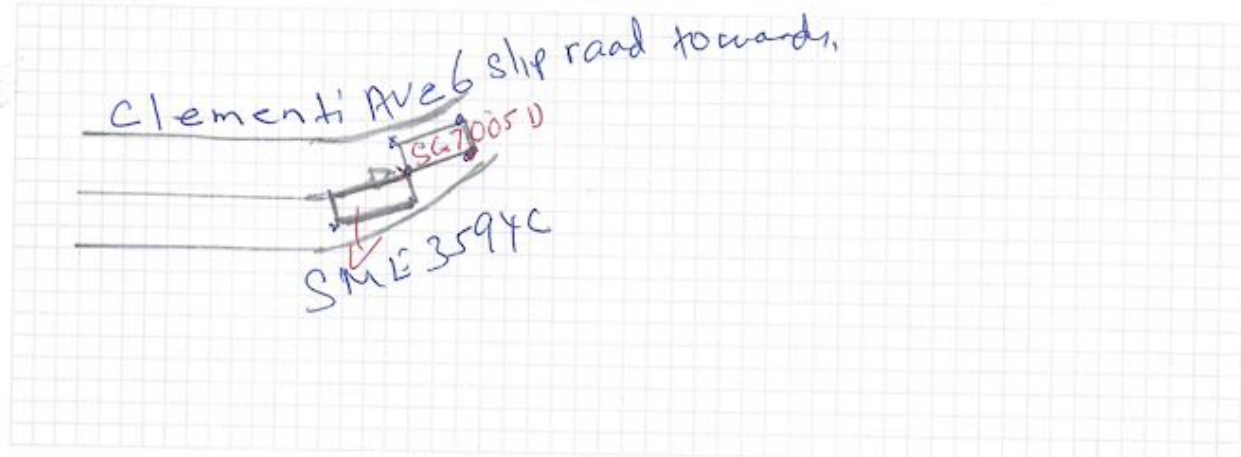 Clementi Ave 6 slip road towards,
SG7005D
SME3594C